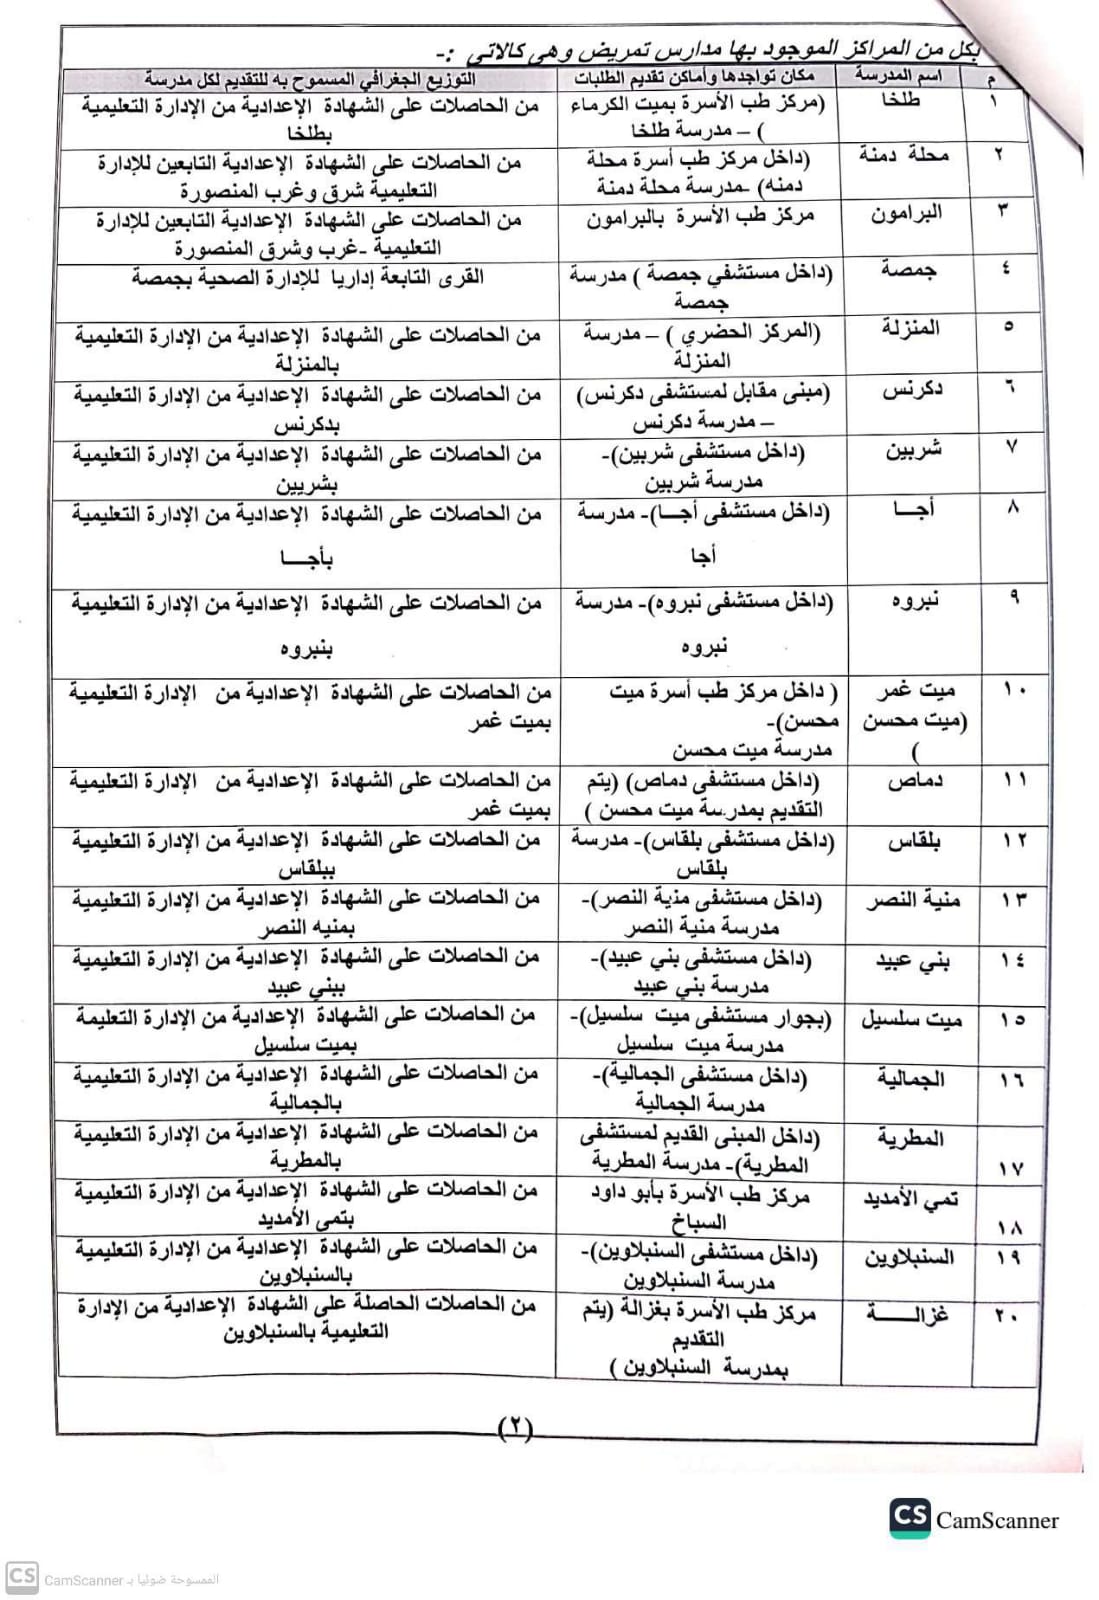 بكل من المراكز الموجود بها مدارس تمريض وهى كالاتي :-
م اسم المدرسة مكان تواجدها وأماكن تقديم الطلبات التوزيع الجغرافي المسموح به للتقديم لكل مدرسة
١ طلخا (مركز طب الأسرة بميت الكرماء من الحاصلات على الشهادة الإعدادية من الإدارة التعليمية
) – مدرسة طلخا بطلخا
٢ محلة دمنة (داخل مركز طب أسرة محلة من الحاصلات على الشهادة الإعدادية التابعين للإدارة
دمنه) -مدرسة محلة دمنة التعليمية شرق وغرب المنصورة
٣ البرامون مركز طب الأسرة بالبرامون من الحاصلات على الشهادة الإعدادية التابعين للإدارة
التعليمية -غرب وشرق المنصورة
٤ جمصة (داخل مستشفي جمصة ) مدرسة القرى التابعة إداريا للإدارة الصحية بجمصة
جمصة
٥ المنزلة (المركز الحضري ) – مدرسة من الحاصلات على الشهادة الإعدادية من الإدارة التعليمية
المنزلة بالمنزلة
٦ دكرنس (مبنى مقابل لمستشفى دكرنس) من الحاصلات على الشهادة الإعدادية من الإدارة التعليمية
– مدرسة دكرنس بدكرنس
٧ شربين (داخل مستشفى شربين)- من الحاصلات على الشهادة الإعدادية من الإدارة التعليمية
مدرسة شربين بشربين
٨ أجــا (داخل مستشفى أجــا)- مدرسة من الحاصلات على الشهادة الإعدادية من الإدارة التعليمية
أجا بأجــا
٩ نبروه (داخل مستشفى نبروه)- مدرسة من الحاصلات على الشهادة الإعدادية من الإدارة التعليمية
نبروه بنبروه
١٠ ميت غمر ( داخل مركز طب أسرة ميت من الحاصلات على الشهادة الإعدادية من الإدارة التعليمية
(ميت محسن محسن)- بميت غمر
) مدرسة ميت محسن
١١ دماص (داخل مستشفى دماص) (يتم من الحاصلات على الشهادة الإعدادية من الإدارة التعليمية
التقديم بمدرسة ميت محسن ) بميت غمر
١٢ بلقاس (داخل مستشفى بلقاس)- مدرسة من الحاصلات على الشهادة الإعدادية من الإدارة التعليمية
بلقاس ببلقاس
١٣ منية النصر (داخل مستشفى منية النصر)- من الحاصلات على الشهادة الإعدادية من الإدارة التعليمية
مدرسة منية النصر بمنيه النصر
١٤ بني عبيد (داخل مستشفى بني عبيد)- من الحاصلات على الشهادة الإعدادية من الإدارة التعليمية
مدرسة بني عبيد ببني عبيد
١٥ ميت سلسيل (بجوار مستشفى ميت سلسيل)- من الحاصلات على الشهادة الإعدادية من الإدارة التعليمة
مدرسة ميت سلسيل بميت سلسيل
١٦ الجمالية (داخل مستشفى الجمالية)- من الحاصلات على الشهادة الإعدادية من الإدارة التعليمية
مدرسة الجمالية بالجمالية
المطرية (داخل المبنى القديم لمستشفى من الحاصلات على الشهادة الإعدادية من الإدارة التعليمية
١٧ المطرية)- مدرسة المطرية بالمطرية
تمي الأمديد مركز طب الأسرة بأبو داود من الحاصلات على الشهادة الإعدادية من الإدارة التعليمية
١٨ السباخ بتمى الأمديد
١٩ السنبلاوين (داخل مستشفى السنبلاوين)- من الحاصلات على الشهادة الإعدادية من الإدارة التعليمية
مدرسة السنبلاوين بالسنبلاوين
٢٠ غزالــــة مركز طب الأسرة بغزالة (يتم من الحاصلات الحاصلة على الشهادة الإعدادية من الإدارة
التقديم التعليمية بالسنبلاوين
بمدرسة السنبلاوين )
(٢)
CS CamScanner
CS CamScanner الممسوحة ضوئيا بـ